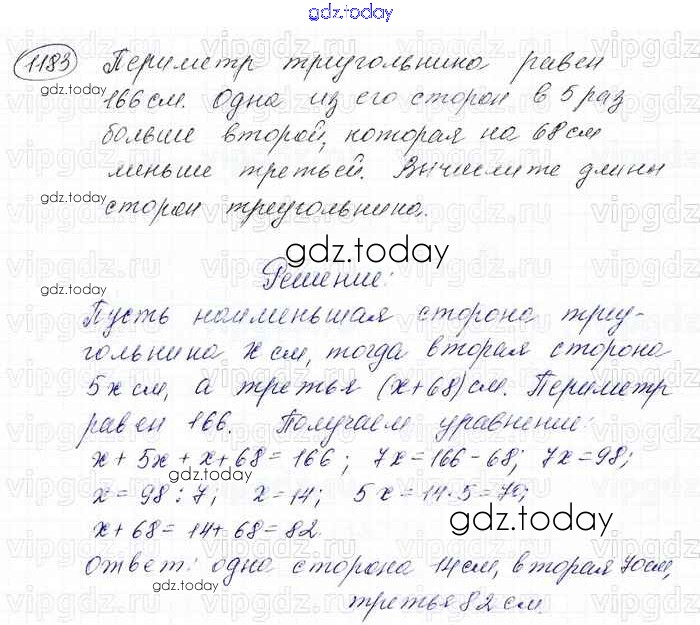 gdz.today
1183 Периметр треугольника равен
166 см. Одна из его сторон в 5 раз
больше второй, которая на 68 см
меньше третьей. Вычислите длины
сторон треугольника.
Решение:
Пусть наименьшая сторона треу-
гольника x см, тогда вторая сторона
5x см, а третья (x+68) см. Периметр
равен 166. Получаем уравнение:
x + 5x + x + 68 = 166 ; 7x = 166 - 68; 7x = 98;
x = 98 : 7; x = 14; 5x = 14 · 5 = 70;
x + 68 = 14 + 68 = 82.
Ответ: одна сторона 14 см, вторая 70 см,
третья 82 см.